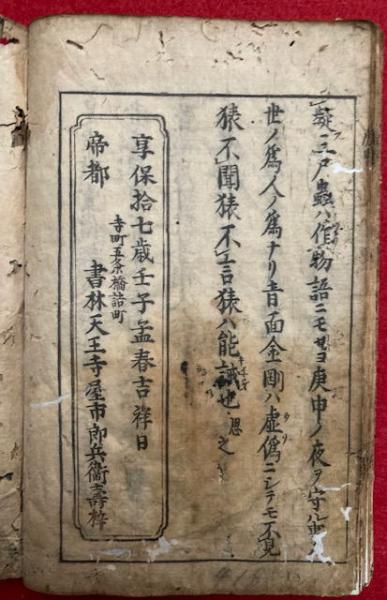 譃三尸蟲ハ作物語ニモせヨ庚申ノ夜ヲ守ル
世ノ爲人ノ爲ナリ青面金剛ハ虚偽ニシテモ不見
猿不聞猿不言猿ハ能誡也思之
享保拾七歳壬子孟春吉祥日
寺町五条橋詰町
帝都 書林天王寺屋市郎兵衞壽梓